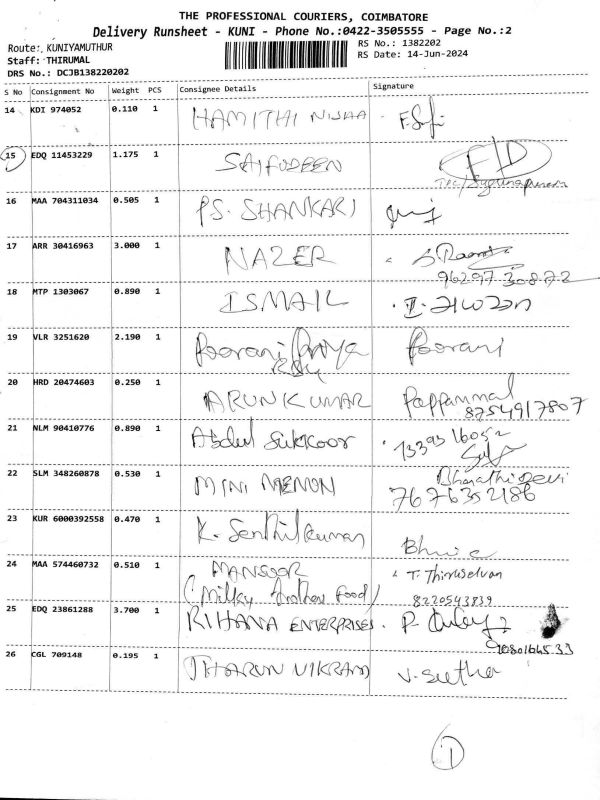 THE PROFESSIONAL COURIERS, COIMBATORE
Delivery Runsheet - KUNI - Phone No.:0422-3505555 - Page No.:2
Route: KUNIYAMUTHUR RS No.: 1382202
Staff: THIRUMAL RS Date: 14-Jun-2024
DRS No.: DCJB138220202
S No Consignment No Weight PCS Consignee Details Signature
14 KDI 974052 0.110 1 HAMITHI NISHA
15 EDQ 11453229 1.175 1 SAIFUDEEN
16 MAA 704311034 0.505 1 PS. SHANKARI
17 ARR 30416963 3.000 1 NAZER
96297 30872
18 MTP 1303067 0.890 1 ISMAIL
19 VLR 3251620 2.190 1 Poorani Priya Poorani
20 HRD 20474603 0.250 1 ARUNKUMAR Pappammal
8754917807
21 NLM 90410776 0.890 1 Abdul Sukkoor
22 SLM 348260878 0.530 1 MINI MENON Bharathi Devi
7676352186
23 KUR 6000392558 0.470 1 K. Senthilkumar
24 MAA 574460732 0.510 1 MANSOOR T. Thiruselvan
(Milky Food) 8220543839
25 EDQ 23861288 3.700 1 RIHANA ENTERPRISES.
26 CGL 709148 0.195 1 THARUN VIKRAM
1